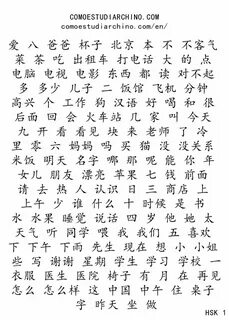 COMOESTUDIARCHINO.COM
comoestudiarchino.com/en/
爱 八 爸爸 杯子 北京 本 不 不客气
菜 茶 吃 出租车 打电话 大 的 点
电脑 电视 电影 东西 都 读 对不起
多 多少 儿子 二 饭馆 飞机 分钟
高兴 个 工作 狗 汉语 好 喝 和 很
后面 回 会 火车站 几 家 叫 今天
九 开 看 看见 块 来 老师 了 冷
里 零 六 妈妈 吗 买 猫 没 没关系
米饭 明天 名字 哪 那 呢 能 你 年
女儿 朋友 漂亮 苹果 七 钱 前面
请 去 热 人 认识 日 三 商店 上
上午 少 谁 什么 十 时候 是 书
水 水果 睡觉 说话 四 岁 他 她 太
天气 听 同学 喂 我 我们 五 喜欢
下 下午 下雨 先生 现在 想 小 小姐
些 写 谢谢 星期 学生 学习 学校 一
衣服 医生 医院 椅子 有 月 在 再见
怎么 怎么样 这 中国 中午 住 桌子
字 昨天 坐 做
HSK 1